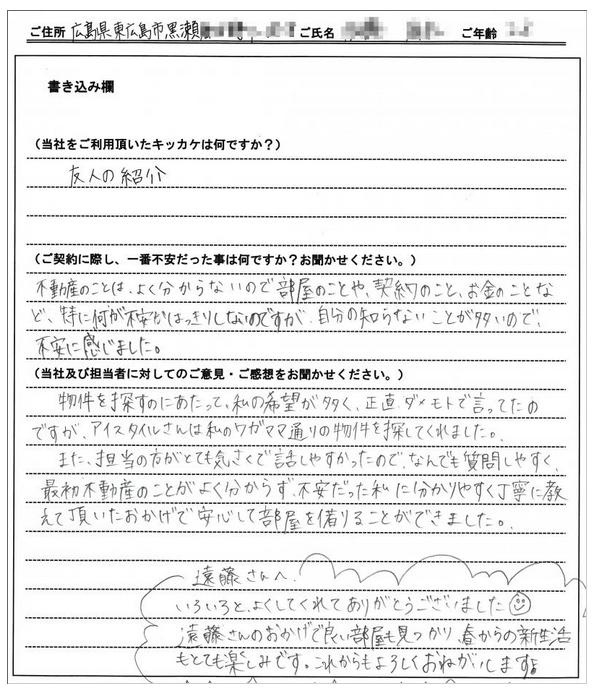 ご住所 広島県東広島市黒瀬 ご氏名 ご年齢
書き込み欄
(当社をご利用頂いたキッカケは何ですか?)
友人の紹介
(ご契約に際し、一番不安だった事は何ですか?お聞かせください。)
不動産のことは、よく分からないので部屋のことや、契約のこと、お金のことな
ど、特に何が不安かはっきりしないのですが、自分の知らないことが多いので、
不安に感じました。
(当社及び担当者に対してのご意見・ご感想をお聞かせください。)
物件を探すのにあたって、私の希望が多く、正直ダメモトで言ってたの
ですが、アイスタイルさんは私のワガママ通りの物件を探してくれました。
また、担当の方がとても気さくで話しやすかったので、なんでも質問しやすく、
最初不動産のことがよく分からず、不安だった私に分かりやすく丁寧に教
えて頂いたおかげで安心して部屋を借りることができました。
遠藤さんへ、
いろいろと、よくしてくれてありがとうございました
遠藤さんのおかげで良い部屋も見つかり、春からの新生活
もとても楽しみです。これからもよろしくおねがいします